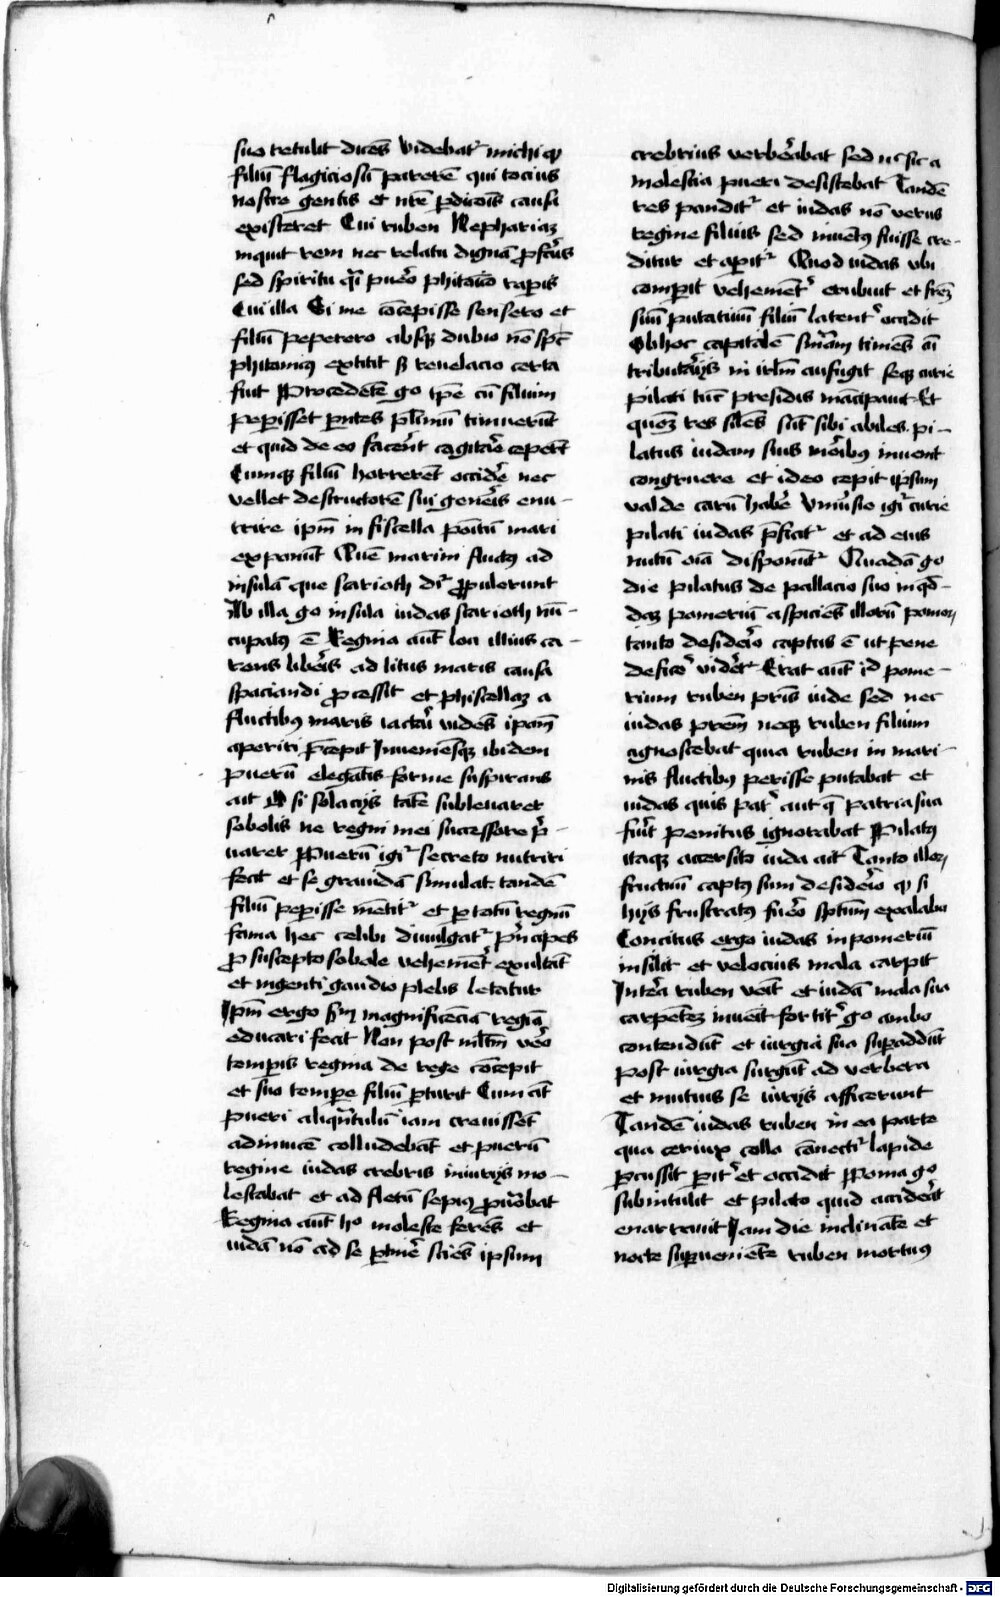 suo retulit dicēs Videbatᷣ michi ꝙ
filiū flagiciosū parerē qui tocius
nostre gentis et nr̄e ꝑdicōis causa
existeret Cui ruben Nephariaꝫ
inquit rem nec relatu dignā ꝓfers
sed spiritu phitonico raperis
Cui illa Si me cōcepisse sensero et
filiū peperero absqꝫ dubio nō spūs
phitonicꝰ extitit sꝫ reuelacio certa
fuit Procedēte gͦ tpē cū filium
peperisset pārtes plīmū timuerūt
et quid de eo facerēt cogitare ceperūt
Cumqꝫ filiū horrerēt occidere nec
vellet destructorē sui generis enu-
trire ipm̄ in fiscella positū mari
exponūt Quē marini fluctꝰ ad
insulā que scarioth dr̄ ꝓpulerunt
Ab illa gͦ insula iudas scarioth nū-
cupatꝰ ē Regina aūt loci illius ca-
rens liberis ad litus maris causa
spaciandi ꝓcessit et phiscellaꝫ a
fluctibꝰ maris iactari vidēs ipam̄
aperiri p̄cepit Inueniēsqꝫ ibidem
puerū elegātis forme suspirans
ait si solacijs tāte subleuarer
sobolis ne regni mei successore pͥ-
uarer Puerū igiᷣ secreto nutriri
fecit et se grauidā simulat tandē
filiū peperisse mētitᷣ et ꝑ totū regnū
fama hec celebri diuulgatᷣ Pͥncipes
ꝓ suscepto sobole vehemēt exultāt
et ingenti gaudio plebs letatur
Ipm̄ ergo scd̄m magnificēciā regiā
educari fecit Non post mltm̄ vero
temporis regina de rege cōcepit
et suo tempore filiū ꝑturit Cum aūt
pueri aliqntulū iam creuissēt
adinuicē colludebāt et puerū
regine iudas crebris iniurijs mo-
lestabat et ad fletū sepiꝰ ꝓuocabat
Regina aūt hͦ moleste ferēs et
iudā nō ad se ꝑtinere sciēs ipsum
crebrius verberabat sed nec sic a
molestia pueri desistebat Tandē
res panditᷣ et iudas nō verus
regine filius sed inuētꝰ fuisse cre-
ditur et aperitᷣ Quod iudas vbi
comperit vehementer erubuit et frēꝫ
suū putatiuū filiū latenter occidit
Ob hoc capitalē snīam timēs cū
tributarijs in irlm̄ aufugit seqꝫ curie
pilati tūc presidis mācipauit Et
quoniam res siles sūt sibi abiles pi-
latus iudam suis moribꝰ inuenit
congruere et ideo cepit ipsum
valde carū habere Vniuersie igiᷣ curie
pilati iudas p̄ficitᷣ et ad eius
nutū oīa disponūtᷣ Quadā gͦ
die pilatus de pallacio suo in qͦd-
daꝫ pomeriū aspiciēs illorū pomoꝝ
tanto desiderio captus ē ut pene
deficere videretᷣ Erat aūt id pome-
rium ruben pr̄is iude sed nec
iudas pr̄em neqꝫ ruben filium
agnoscebat quia ruben in mari-
nis fluctibꝰ perisse putabat et
iudas quis pater aut q̄ patria sua
fuerit penitus ignorabat Pilatꝰ
itaqꝫ accersito iuda ait Tanto illoꝝ
fructuū captꝰ sum desiderio ꝙ si
hijs frustratꝰ fuero spm̄ exalabo
Concitus ergo iudas in pomeriū
insiliit et velocius mala carpit
Interea ruben venit et iudā mala sua
carpētem inuenit fortiter gͦ ambo
contendūt et iurgia sua suꝑaddūt
post iurgia surgūt ad verbera
et mutuis se iniurijs afficerunt
Tandē iudas ruben in ea parte
qua ceruix collo cōnectitᷣ lapide
ꝑcussit pariter et occidit Poma gͦ
subintulit et pilato quid acciderit
enarrauit Iam die inclināte et
nocte suꝑueniēte ruben mortuꝰ
Digitalisierung gefördert durch die Deutsche Forschungsgemeinschaft - DFG